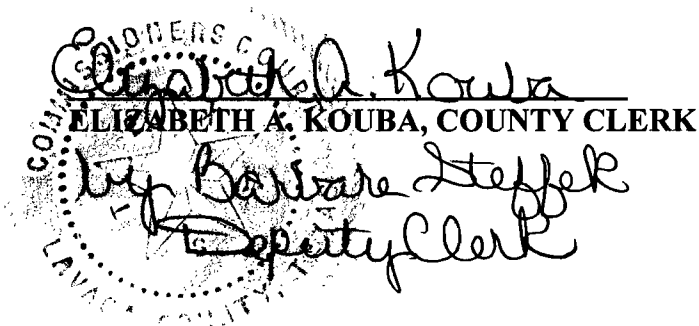 Elizabeth A. Kouba
ELIZABETH A. KOUBA, COUNTY CLERK
by Barbara Steffek
Deputy Clerk
COMMISSIONERS COURT
LAVACA COUNTY, TEXAS